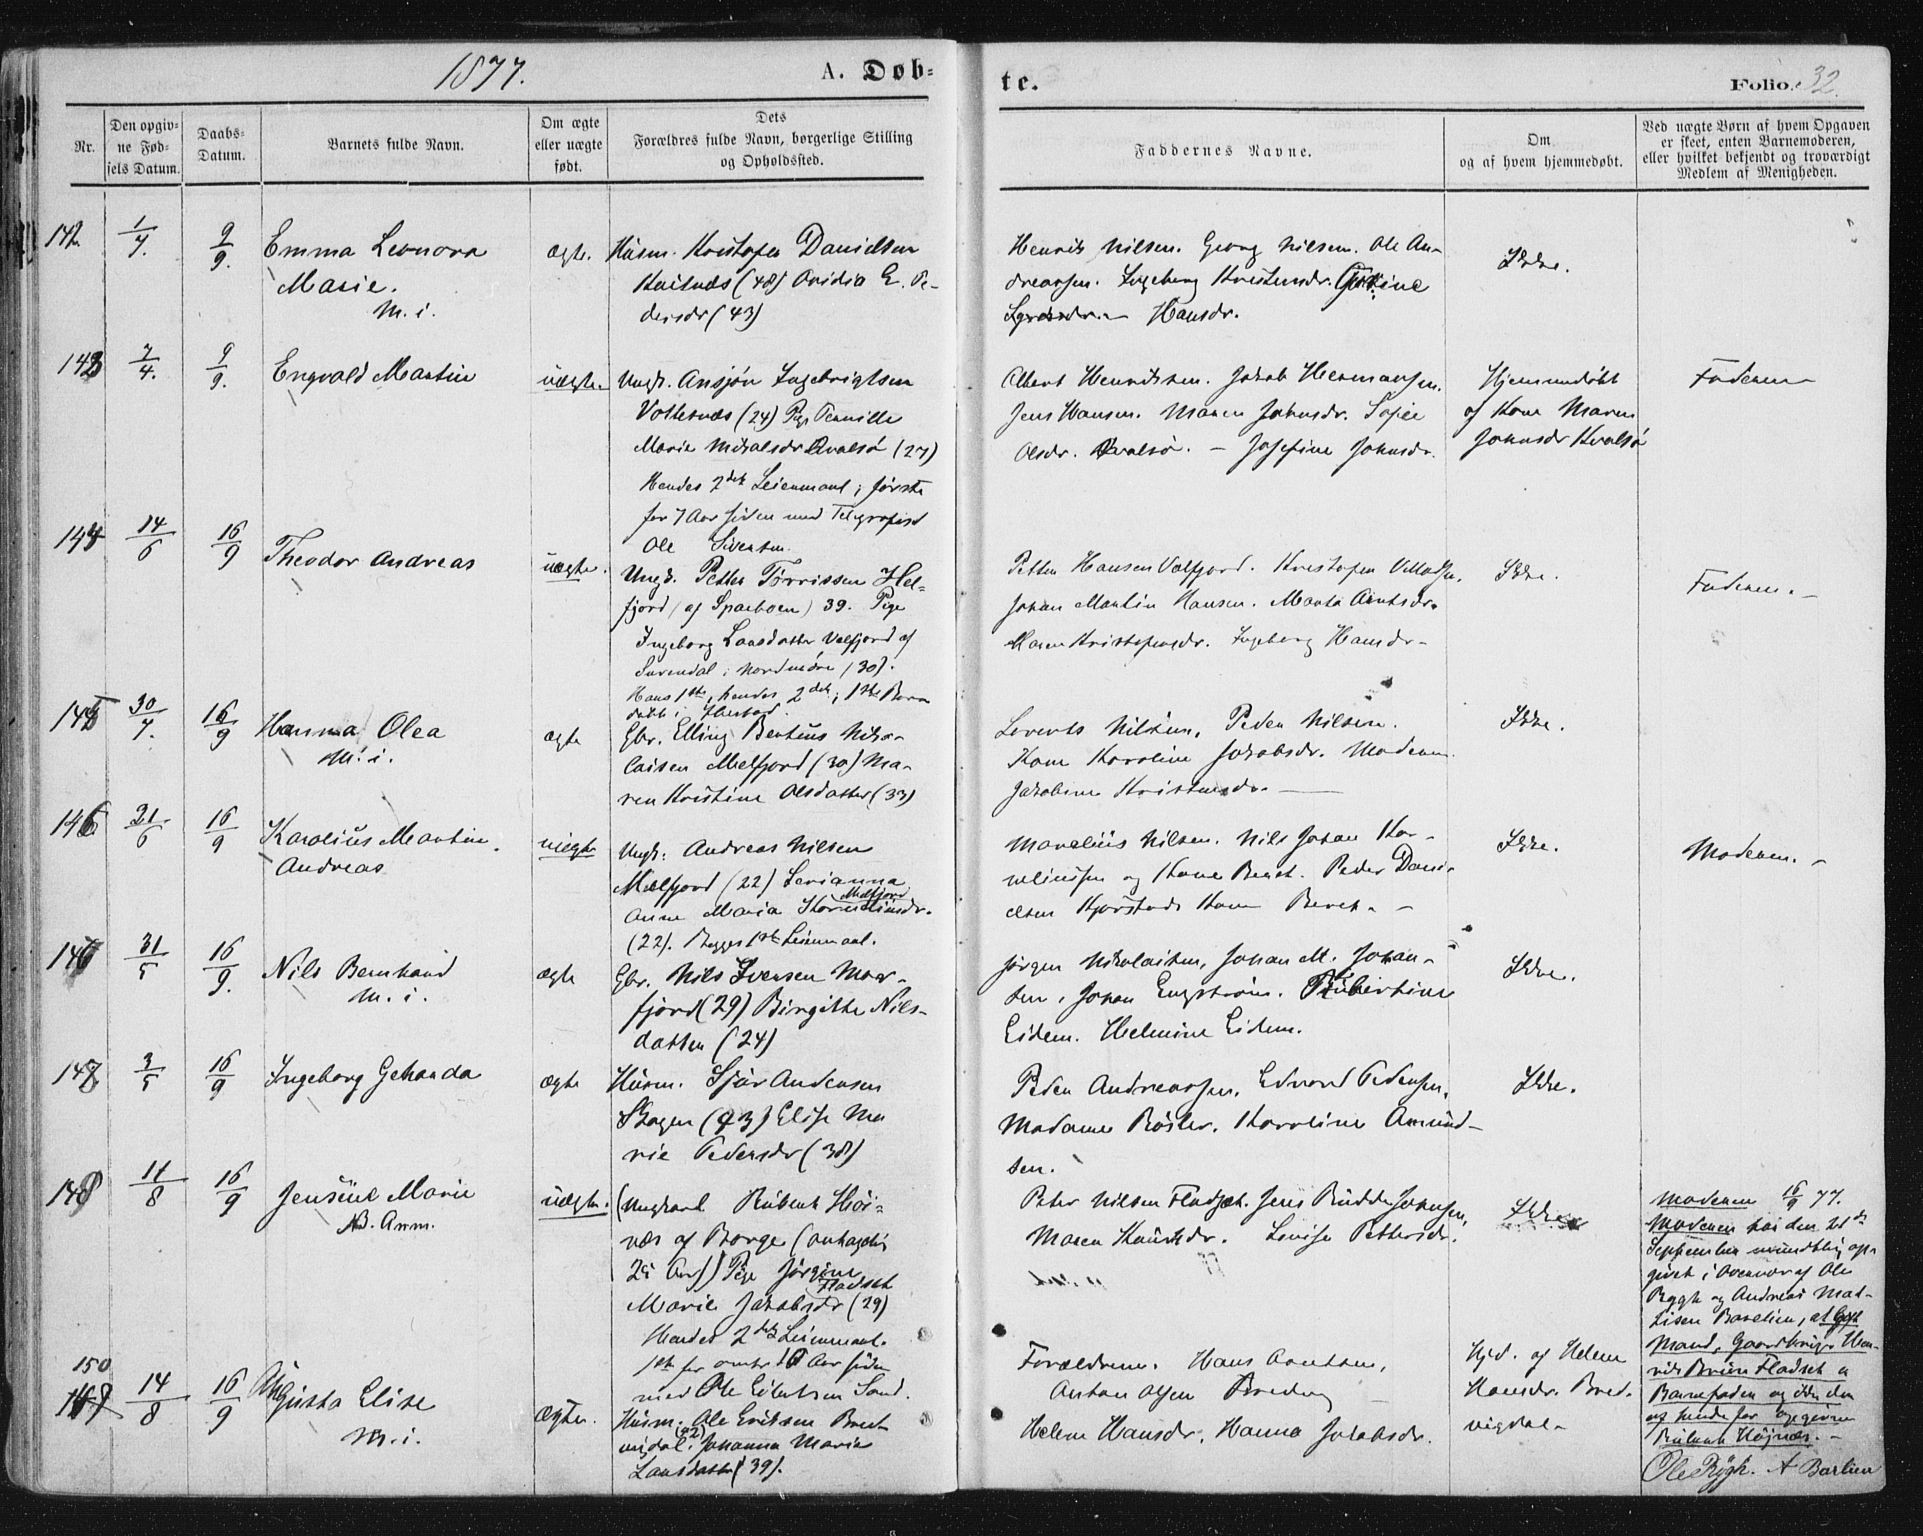 1877.
A. Døb-
te.
Folio. 32.
Nr.
Den opgiv-
ne Fød-
sels Datum.
Daabs-
Datum.
Barnets fulde Navn.
Om ægte
eller uægte
født.
Dets
Forældres fulde Navn, borgerlige Stilling
og Opholdssted.
Faddernes Navne.
Om
og af hvem hjemmedøbt.
Ved uægte Børn af hvem Opgaven
er skeet, enten Barnemoderen,
eller hvilket bekjendt og troværdigt
Medlem af Menigheden.
1/7. 9/9. Emma Leonora
Marie.
M. i.
ægte. Husm. Kristofer Danielsen
(48) Ovidia E. Pe-
dersdr (43)
Henrik Nilsen. Georg Nilsen. Ole An-
dreassen. Ingeborg Kristensdr.
Hansdr.
Ikke.
7/4. 9/9. Engvald Martin
uægte. Ungk. Ansjøn Ingebrigtsen
Vottesnæs (24) Pige Pernille
Marie Nikolsdr Qvalsø (27)
Hendes 2det Leiermaal; første
for 7 Aar siden med Telegrafist
Ole Sivertsen.
Albert Henriksen. Jakob Hermansen.
Jens Hansen. Maren Johnsdr. Sofie
Olsdr. Kvalsø. – Josefine Johnsdr.
Hjemmedøbt
af Kone Maren
Johnsdr Kvalsø
Faderen
14/6 16/9 Theodor Andreas
uægte. Ungk. Petter Tørrissen Hel-
fjord (af Sparboen) 39. Pige
Ingeborg Larsdatter Velfjord af
Surendal i Nordmøre (30).
Hans 1ste, hendes 2det; 1ste Barn
døbt i
Petter Hansen Velfjord. Kristofer
Johan Martin Hansen. Marta Arntsdr.
Maren Kristofersdr. Ingeborg Hansdr –
Ikke.
Faderen. –
30/7. 16/9 Hanna Olea
M. i.
ægte Gbr. Elling Bertius Niko-
laisen Melfjord (30) Ma-
ren Kristine Olsdatter (33)
Nilsen, Peder Nilsen.
Kone Karoline Jakobsdr. Moderen
Jakobine Kristensdr. –
Ikke.
146 21/6 16/9 Karolius Martin
Andreas
uægte Ungk. Andreas Nilsen
Melfjord (22) Serianna
Melfjord
Anne Maria Kornelinsdr.
(22). Begges 1ste Leiermaal.
Marelius Nilsen. Nils Johan Kor-
neliusen og Kone Beret. Peder Dani-
elsen Kjørstads Kone Beret. –
Ikke.
Moderen. –
31/5 16/9. Nils Bernhard
M. i.
ægte Gbr. Nils Iversen Mor-
fjord (29) Birgitte Nils-
datter (24)
Jørgen Nikolaisen, Johan M. Johan-
sen, Johan Engstrøm. Rubertine
Eidem. Helmine Eidem.
Ikke.
3/5 16/9 Ingeborg Gehanda
ægte Husm. Sjur Andersen
Skagen (43) Elise Ma
rie Pedersdr (38)
Peder Andreassen, Edvard Pedersen,
Madame Røsler. Karoline Amund-
sen.
Ikke.
11/8 16/9 Jensine Marie
NB. Anm.
uægte. (Ungkarl Rubert Høi-
næs af Borge (antagelig
25 Aar)) Pige Jørgine
Fladset
Marie Jakobsdr (29)
Hendes 2det Leiermaal.
1ste for omtr. 6 Aar siden
med Ole Eilertsen Sand.
Peter Nilsen Fladset. Jens Johnsen,
Maren Knutsdr. Lovise Pettersdr.
Ikke
Moderen 16/9 77.
Moderen har den
September mundtlig op-
givet i Overvær af Ole
Rygh og Andreas Mat-
tisen Barlien, at gift
Mand, Gaardbruger Hen-
rik Fladset er
Barnefader og ikke den
af hende før opgivne
Rubert Højnæs. –
Ole Rygh. A Barlien
150
14/8 16/9 Augusta Elise
M. i.
ægte. Husm. Ole Eriksen Bred-
vigdal. Johanna Maria
Larsdatter (39).
Forældrene. Hans Arntsen,
Anton Olsen Bredvig
Helene Hansdr, Hanna Jakobsdr.
Hjd. af Helene
Hansdr. Bred-
vigdal –